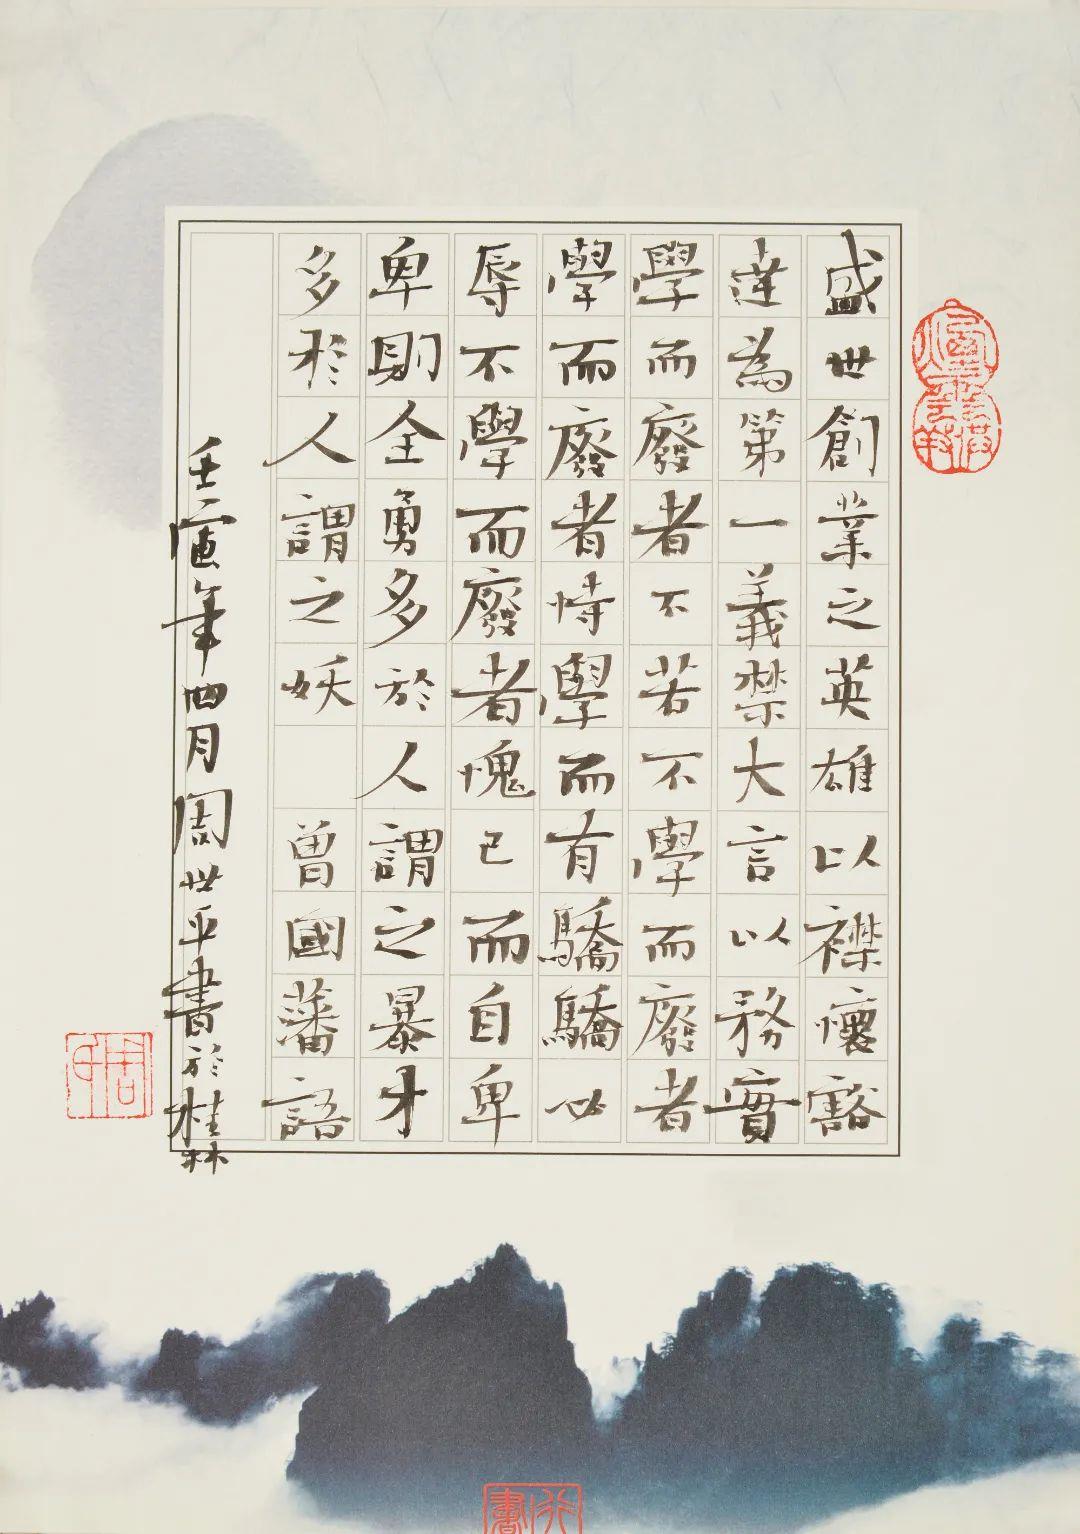 盛世創業之英雄以襟懷豁
達為第一義禁大言以務實
學而廢者不若不學而廢者
學而廢者恃學而有驕驕必
辱不學而廢者愧已而自卑
卑則全勇多於人謂之暴才
多於人謂之妖 曾國藩語
壬寅年四月周世平書於桂林